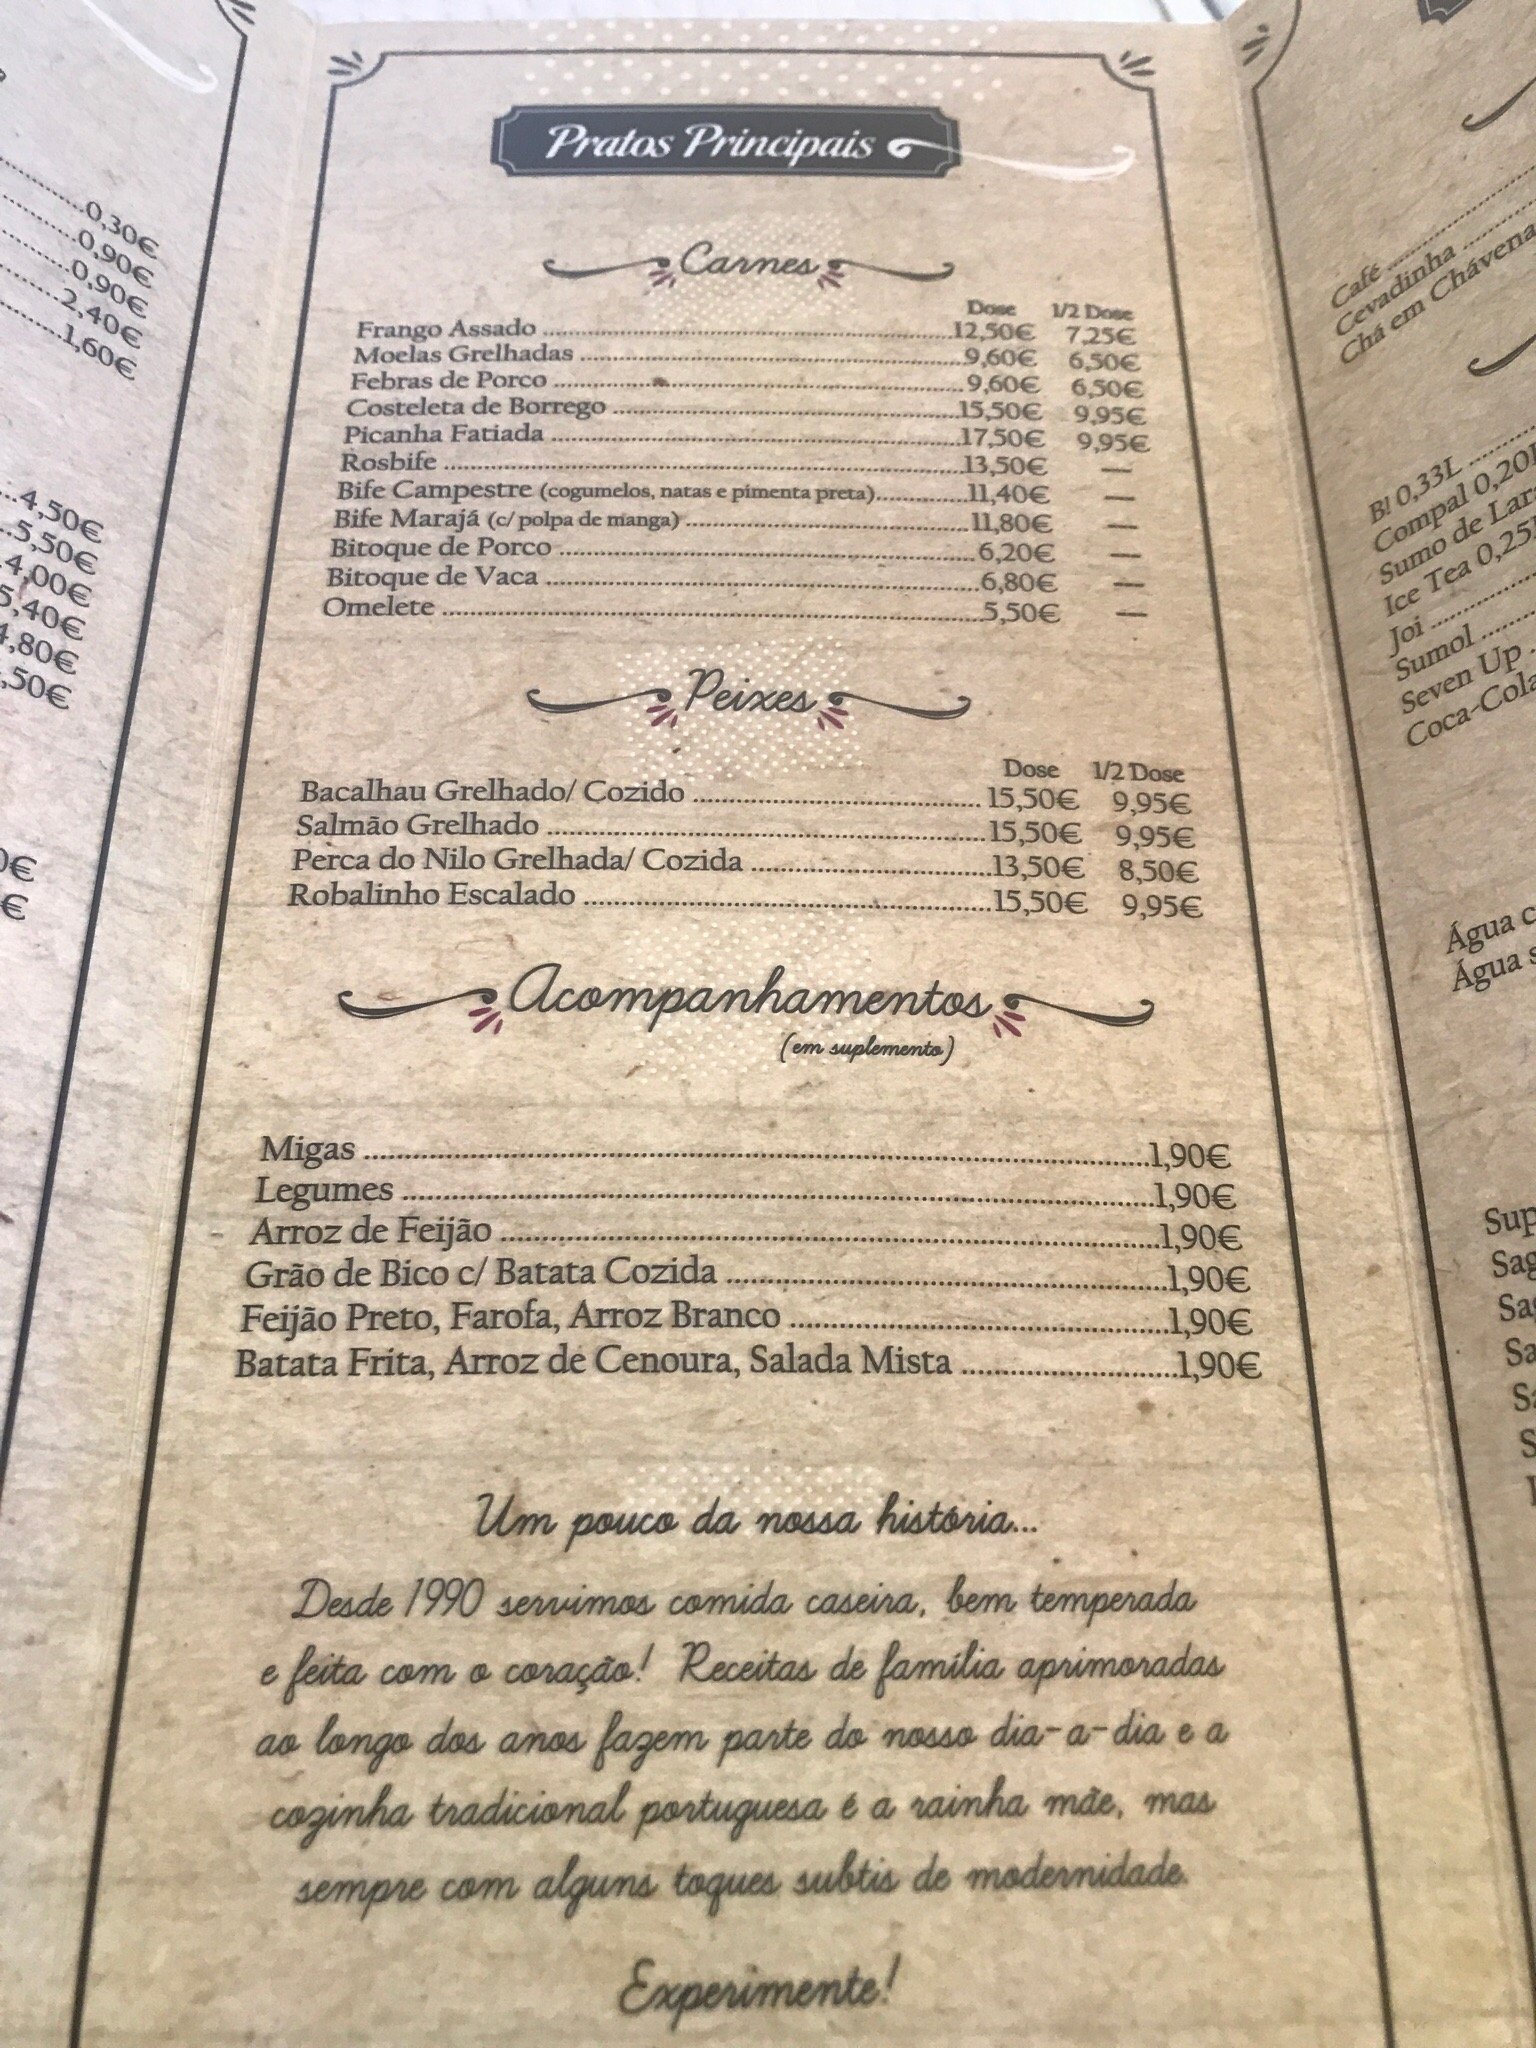 0,30€
0,90€
0,90€
2,40€
1,60€
4,50€
5,50€
4,00€
5,40€
4,80€
,50€
€
€
Pratos Principais
Carnes
Dose 1/2 Dose
Frango Assado 12,50€ 7,25€
Moelas Grelhadas 9,60€ 6,50€
Febras de Porco 9,60€ 6,50€
Costeleta de Borrego 15,50€ 9,95€
Picanha Fatiada 17,50€ 9,95€
Rosbife 13,50€ —
Bife Campestre (cogumelos, natas e pimenta preta) 11,40€ —
Bife Marajá (c/ polpa de manga) 11,80€ —
Bitoque de Porco 6,20€ —
Bitoque de Vaca 6,80€ —
Omelete 5,50€ —
Peixes
Dose 1/2 Dose
Bacalhau Grelhado/ Cozido 15,50€ 9,95€
Salmão Grelhado 15,50€ 9,95€
Perca do Nilo Grelhada/ Cozida 13,50€ 8,50€
Robalinho Escalado 15,50€ 9,95€
Acompanhamentos
(em suplemento)
Migas 1,90€
Legumes 1,90€
Arroz de Feijão 1,90€
Grão de Bico c/ Batata Cozida 1,90€
Feijão Preto, Farofa, Arroz Branco 1,90€
Batata Frita, Arroz de Cenoura, Salada Mista 1,90€
Um pouco da nossa história...
Desde 1990 servimos comida caseira, bem temperada
e feita com o coração! Receitas de família aprimoradas
ao longo dos anos fazem parte do nosso dia-a-dia e a
cozinha tradicional portuguesa é a rainha mãe, mas
sempre com alguns toques subtis de modernidade.
Experimente!
Café
Cevadinha
Chá em Chávena
B! 0,33L
Compal 0,20
Sumo de Lar
Ice Tea 0,25
Joi
Sumol
Seven Up
Coca-Cola
Água c
Água s
Sup
Sag
Sa
Sa
S
S